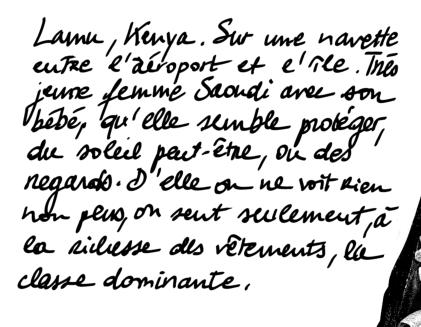 Lamu, Kenya. Sur une navette
entre l'aéroport et l'île. Très
jeune femme Saoudi avec son
bébé, qu'elle semble protéger,
du soleil peut-être, ou des
regards. D'elle on ne voit rien
non plus, on sent seulement, à
la richesse des vêtements, la
classe dominante.